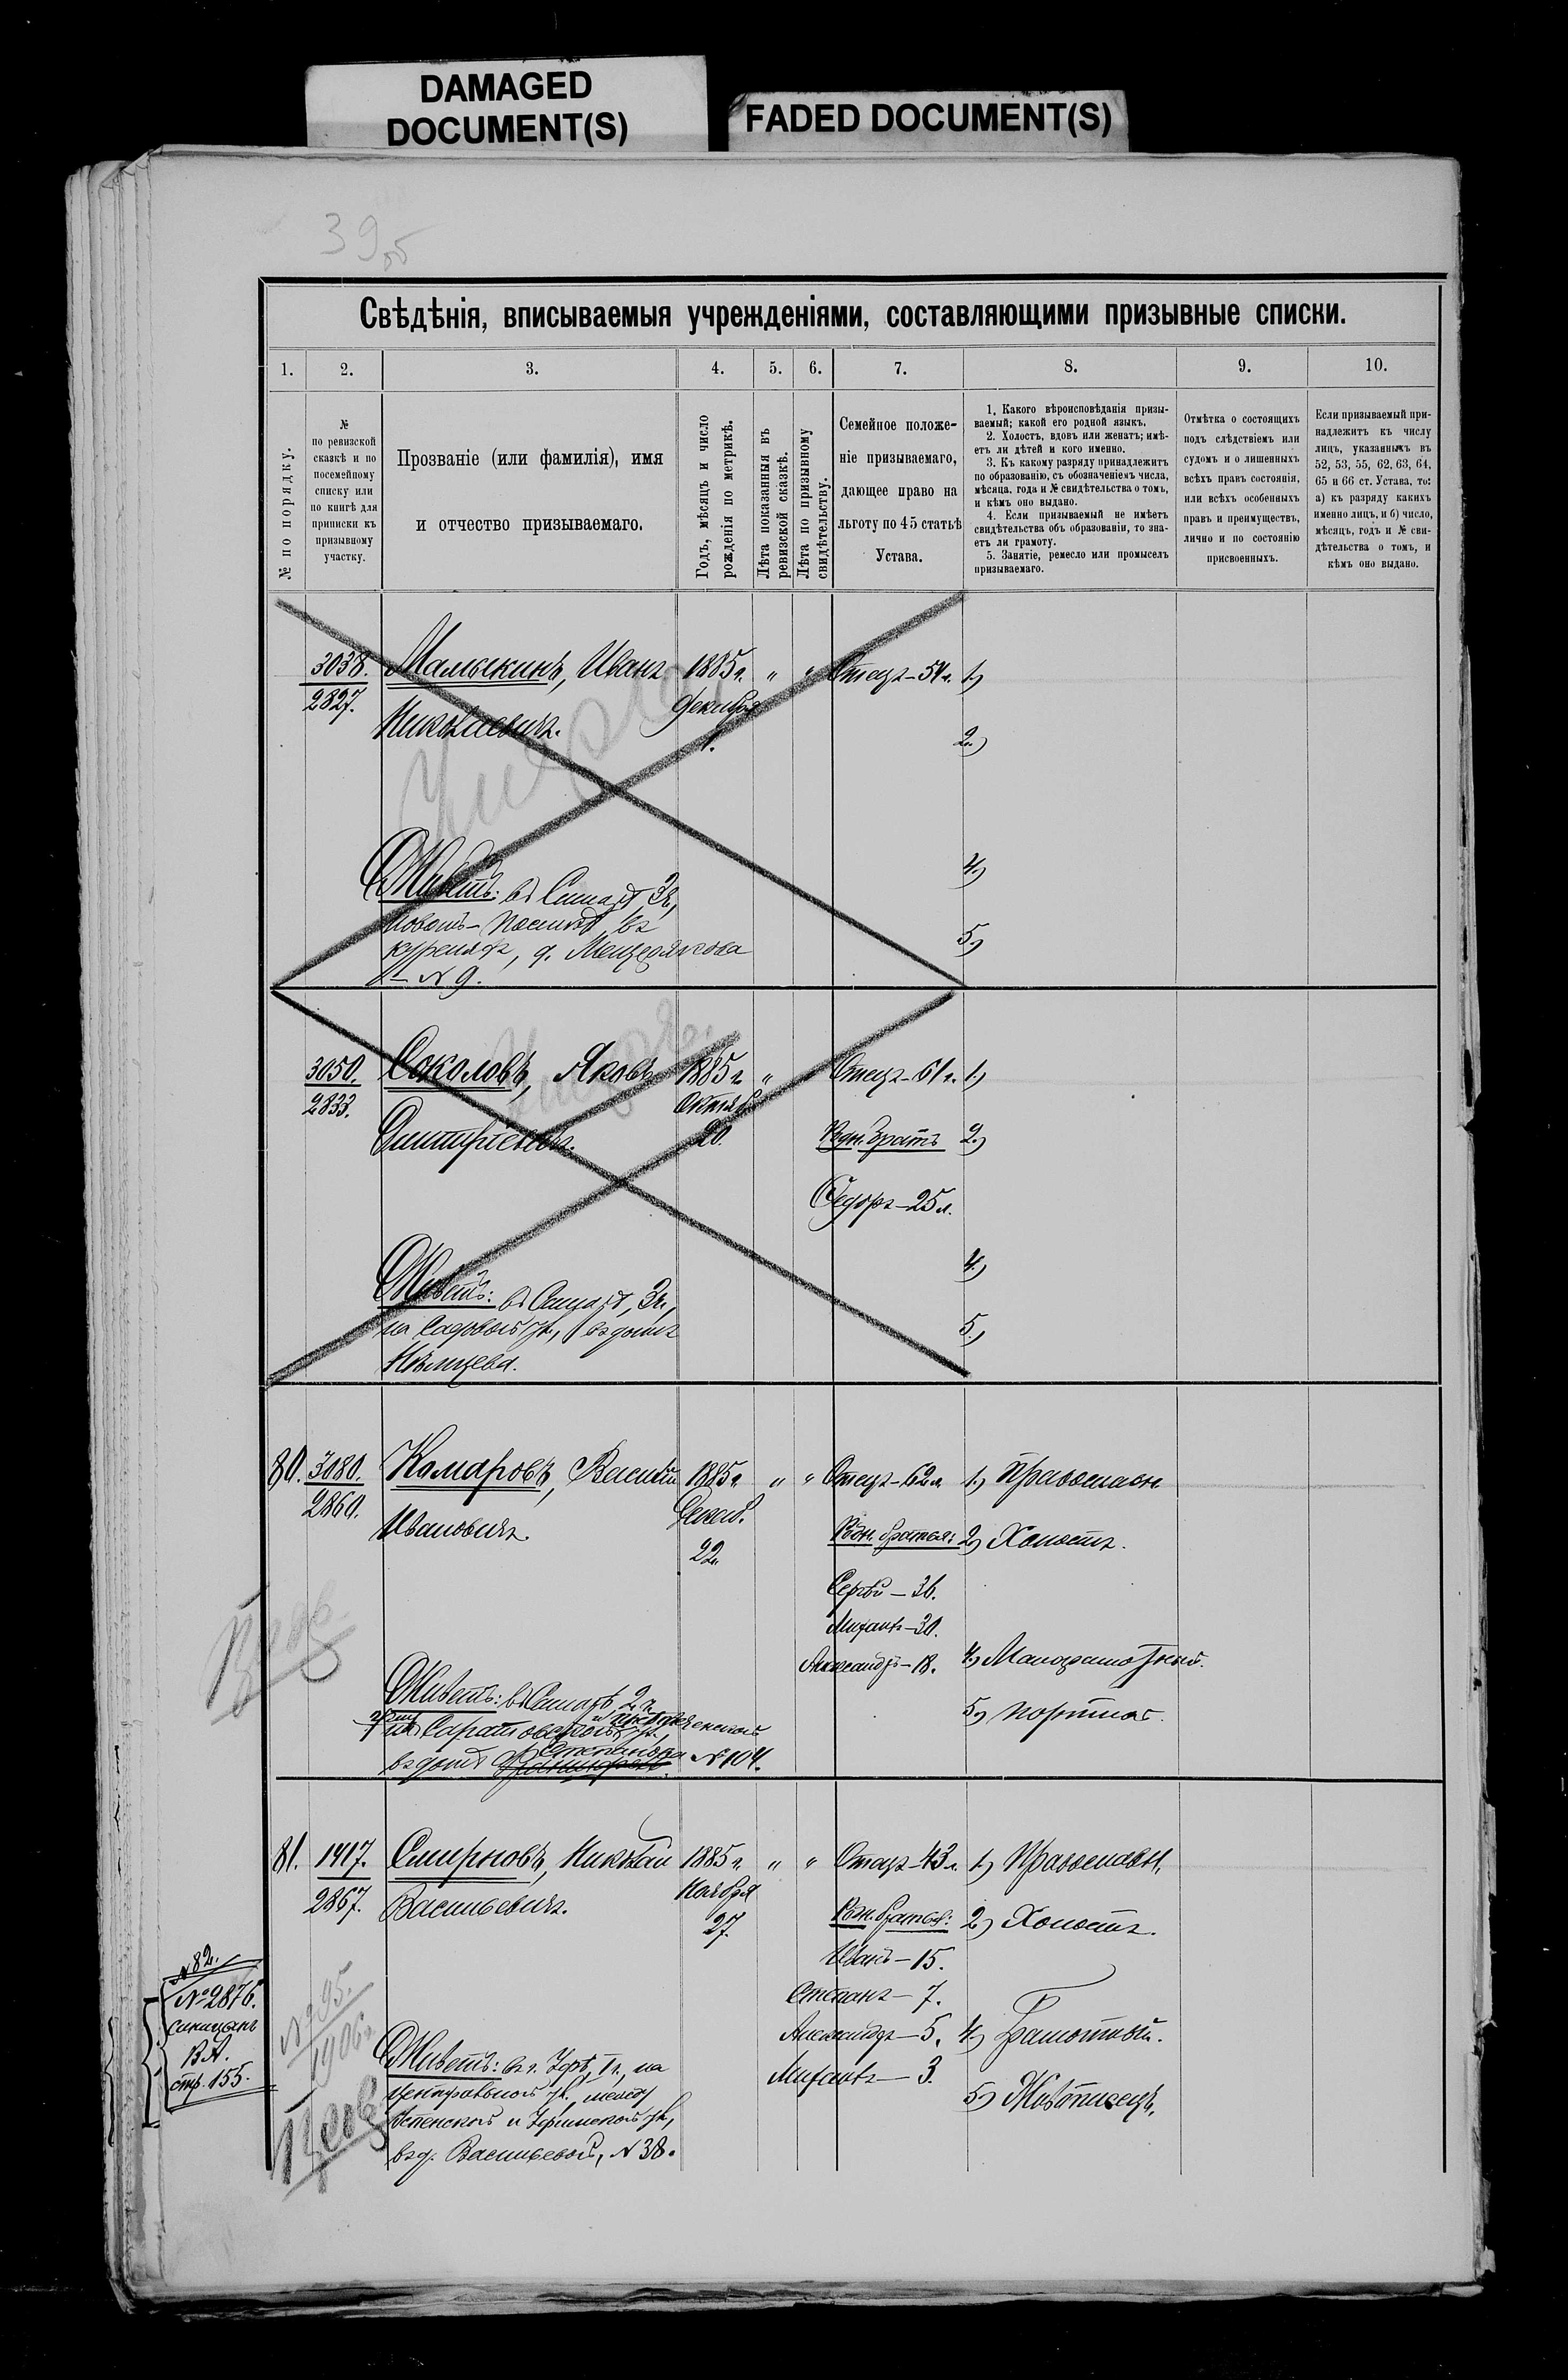 DAMAGED
DOCUMENT(S)
FADED DOCUMENT(S)
39 об
Свѣдѣнія, вписываемыя учрежденіями, составляющими призывные списки.
1.
2.
3.
4.
5.
6.
7.
8.
9.
10.
№ по порядку.
№
по ревизской
сказкѣ и по
посемейному
списку или
по книгѣ для
приписки къ
призывному
участку.
Прозваніе (или фамилія), имя
и отчество призываемаго.
Годъ, мѣсяцъ и число
рожденія по метрикѣ.
Лѣта показанныя въ
ревизской сказкѣ.
Лѣта по призывному
свидѣтельству.
Семейное положе-
ніе призываемаго,
дающее право на
льготу по 45 статьѣ
Устава.
1. Какого вѣроисповѣданія призы-
ваемый; какой его родной языкъ.
2. Холостъ, вдовъ или женатъ; имѣ-
етъ ли дѣтей и кого именно.
3. Къ какому разряду принадлежитъ
по образованію, съ обозначеніемъ числа,
мѣсяца, года и № свидѣтельства о томъ,
и кѣмъ оно выдано.
4. Если призываемый не имѣетъ
свидѣтельства объ образованіи, то зна-
етъ ли грамоту.
5. Занятіе, ремесло или промыселъ
призываемаго.
Отмѣтка о состоящихъ
подъ слѣдствіемъ или
судомъ и о лишенныхъ
всѣхъ правъ состоянія,
или всѣхъ особенныхъ
правъ и преимуществъ,
лично и по состоянію
присвоенныхъ.
Если призываемый при-
надлежитъ къ числу
лицъ, указанныхъ въ
52, 53, 55, 62, 63, 64,
65 и 66 ст. Устава, то:
а) къ разряду какихъ
именно лицъ, и б) число,
мѣсяцъ, годъ и № сви-
дѣтельства о томъ, и
кѣмъ оно выдано.
3038. Малыкинъ, Иванъ 1885 г. " " Отецъ-54 л. 1)
2827. Николаевичъ. Декабря
1.
2.)
4.)
Живетъ: въ Самарѣ, 3 ч.,
5.)
д. Мещерякова
№ 9.
3050. Соколовъ, Яковъ 1885 г. " Отецъ-61 г. 1.)
2833. Октяб.
Дмитріевичъ. 20. Родн. братъ 2.)
Федоръ-25 л.
4.)
Живетъ: въ Самарѣ, 3 ч.,
на Садовой ул., въ домѣ 5.)
Нѣмцева.
80. 3080. Комаровъ, Василій 1885 г. " " Отецъ-62 л. 1.) Православн.
2860. Ивановичъ. Декаб. Родн. братья: 2.) Холостъ.
22.
Сергѣй-36.
Михаилъ-30.
Александръ-18. 4.) Малограмотный.
Живетъ: въ Самарѣ 2 ч.
5.) портной.
Саратовской ул.,
въ домѣ Степанова № 104.
81. 1417. Смирновъ, Николай 1885 г. " " Отецъ-43 г. 1.) Православн.
2867. Васильевичъ. Ноября
27. Родн. братья: 2.) Холостъ.
Иванъ-15.
Степанъ-7.
Александръ-5. 4.) Грамотный.
Михаилъ-3.
5.) Живописецъ.
Живетъ: въ г. Уфѣ, 1 ч., на
Центральной ул., между
Успенской и Уфимской ул.,
въ д. Васильевой, № 38.
№ 82.
№ 2876.
Синицынъ
В.А.
стр. 155.
1906 г.